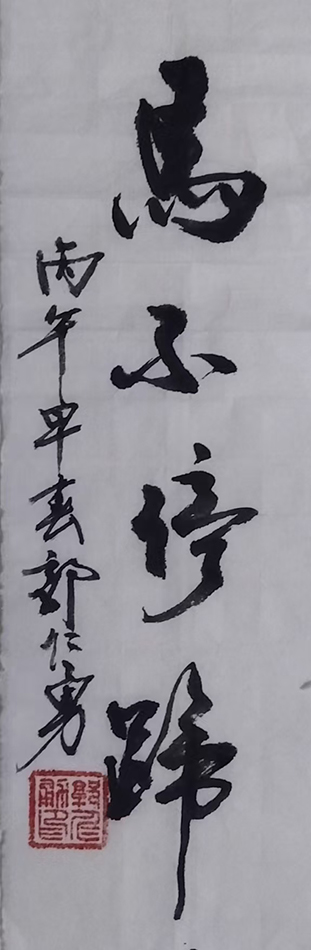 馬不停蹄
丙午早春郭仁勇